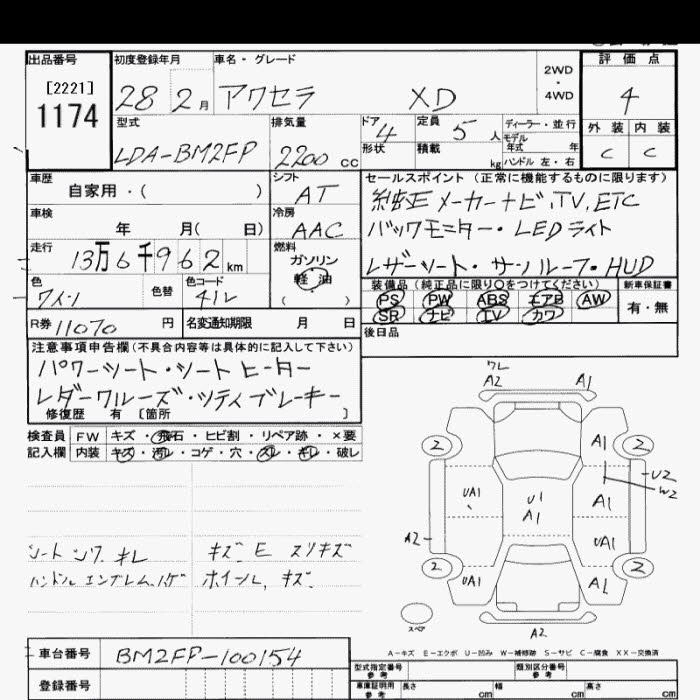 出品番号 初度登録年月 車名・グレード 評価点
[2221]
1174
28 2月 アクセラ XD 2WD・4WD 4
型式 排気量 ドア 4 定員 5人 ディーラー・並行 外装 内装
モデル年式 年
LDA-BM2FP 2200cc 形状 積載 kg ハンドル 左・右 C C
車歴 シフト セールスポイント (正常に機能するものに限ります)
自家用・( ) AT 純正メーカーナビ,TV,ETC
車検 冷房 バックモニター・LEDライト
年 月( 日) AAC
走行 燃料 レザーシート・サンルーフ・HUD
13万6千962km ガソリン
軽油
( )
色 色替 色コード 装備品(純正品に限り○をつけてください) 新車保証書
ワイン 41V PS PW ABS エアB AW 有・無
SR ナビ TV カワ
R券 11070円 名変通知期限 月 日 後日品
注意事項申告欄(不具合内容等は具体的に記入して下さい)
パワーシート・シートヒーター
レダークルーズ・シティブレーキ
修復歴 有 [箇所 ]
検査員 FW キズ・飛石・ヒビ割・リペア跡・×要
記入欄 内装 キズ・汚レ・コゲ・穴・スレ・キレ・破レ
ワレ
A2 A1
2 A1 2
U2
W2
UA1 U1 A1 A1
A2 UA1
2 UA1 A1 2
スペア A2
シート シワ キレ キズ E スリキズ
ハンドル エンブレム ハゲ ホイール キズ
A-キズ E-エクボ U-凹み W-補修跡 S-サビ C-腐食 XX-交換済
車台番号 BM2FP-100154
型式指定番号 参考 類別区分番号 参考
登録番号 車庫証明用 参考 長さ cm 幅 cm 高さ cm